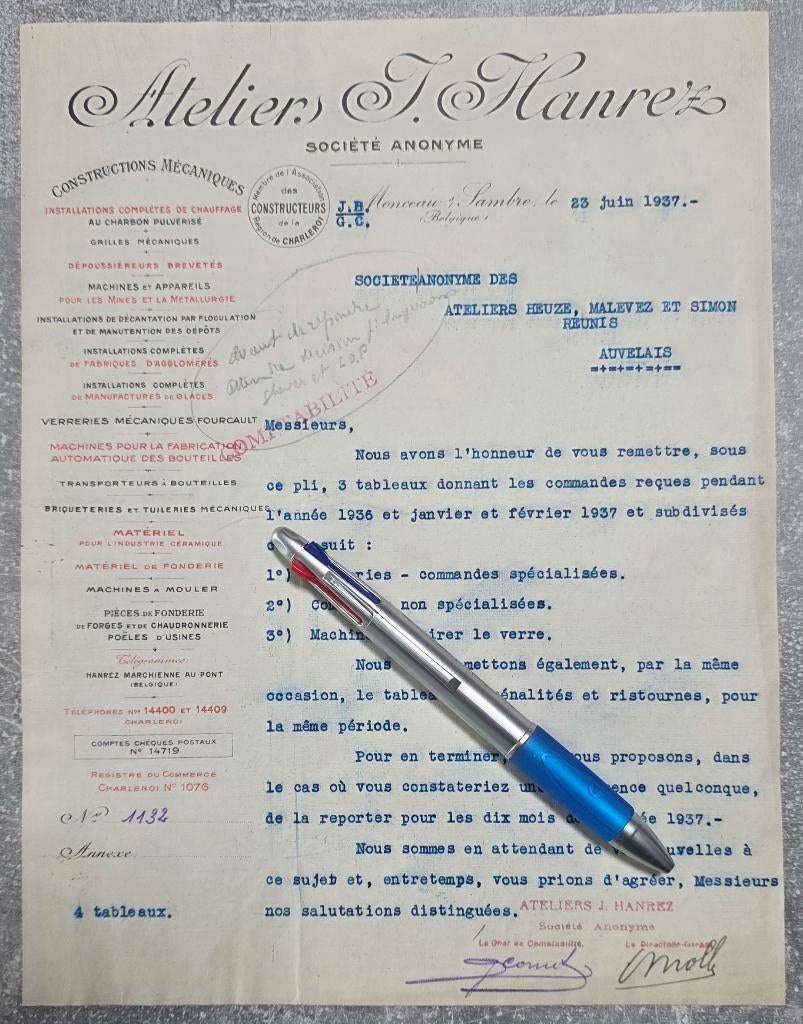 Ateliers J. Hanrez
SOCIÉTÉ ANONYME
CONSTRUCTIONS MÉCANIQUES
INSTALLATIONS COMPLÈTES DE CHAUFFAGE
AU CHARBON PULVÉRISÉ
GRILLES MÉCANIQUES
DÉPOUSSIÉREURS BREVETÉS
MACHINES ET APPAREILS
POUR LES MINES ET LA MÉTALLURGIE
INSTALLATIONS DE DÉCANTATION PAR FLOCULATION
ET DE MANUTENTION DES DÉPÔTS
INSTALLATIONS COMPLÈTES
DE FABRIQUES D'AGGLOMÉRÉS
INSTALLATIONS COMPLÈTES
DE MANUFACTURES DE GLACES
VERRERIES MÉCANIQUES FOURCAULT
MACHINES POUR LA FABRICATION
AUTOMATIQUE DES BOUTEILLES
TRANSPORTEURS À BOUTEILLES
BRIQUETERIES ET TUILERIES MÉCANIQUES
MATÉRIEL
POUR L'INDUSTRIE CÉRAMIQUE
MATÉRIEL DE FONDERIE
MACHINES À MOULER
PIÈCES DE FONDERIE
DE FORGES ET DE CHAUDRONNERIE
POÊLES D'USINES
Télégrammes:
HANREZ MARCHIENNE-AU-PONT
(BELGIQUE)
TÉLÉPHONES Nos 14400 ET 14409
CHARLEROI
COMPTES CHÈQUES POSTAUX
N° 14719
REGISTRE DU COMMERCE
CHARLEROI N° 1076
N° 1132
Annexe
4 tableaux.
Membre de l'Association
des
CONSTRUCTEURS
de la
Région de CHARLEROI
J.B.
G.C.
Monceau s/ Sambre, le 23 juin 1937.-
(Belgique)
SOCIETE ANONYME DES
ATELIERS HEUZE, MALEVEZ ET SIMON
REUNIS
AUVELAIS
=+=+=+=+==
avant de répondre
attendre décision
et
COMPTABILITÉ
Messieurs,
Nous avons l'honneur de vous remettre, sous
ce pli, 3 tableaux donnant les commandes reçues pendant
l'année 1936 et janvier et février 1937 et subdivisés
c suit :
1°) ries - commandes spécialisées.
2°) Co non spécialisées.
3°) Machin irer le verre.
Nous mettons également, par la même
occasion, le table énalités et ristournes, pour
la même période.
Pour en terminer, ous proposons, dans
le cas où vous constateriez un ence quelconque,
de la reporter pour les dix mois d ée 1937.-
Nous sommes en attendant de v ouvelles à
ce sujet et, entretemps, vous prions d'agréer, Messieurs
nos salutations distinguées.
ATELIERS J. HANREZ
Société Anonyme
Le Chef de Comptabilité, Le Directeur-Gérant